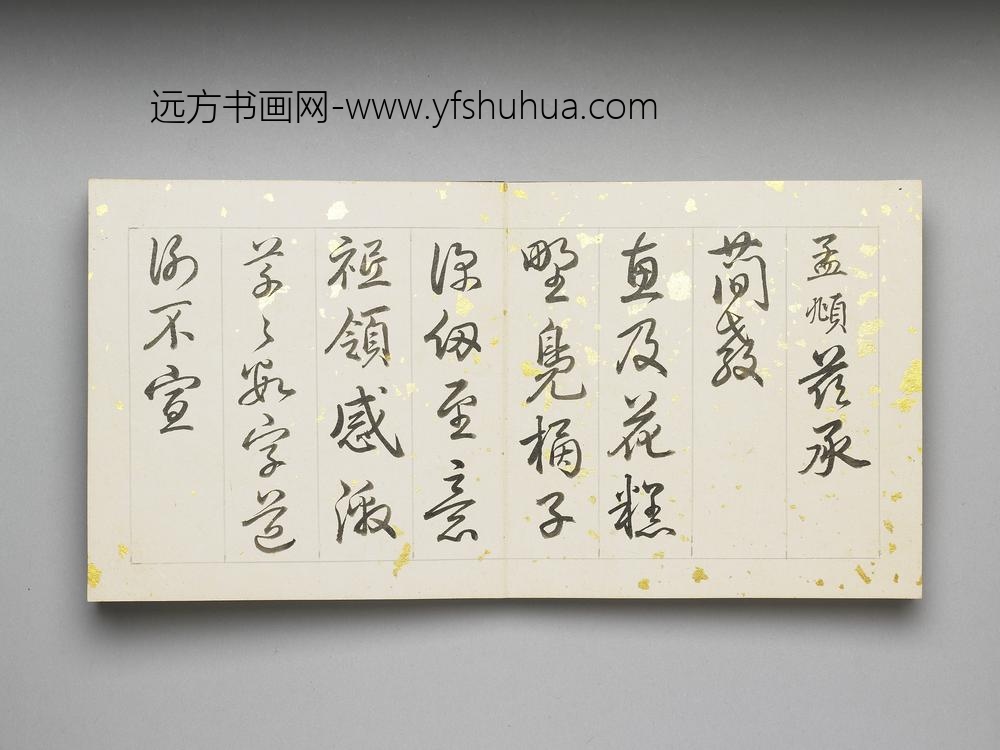 远方书画网-www.yfshuhua.com
孟頫茲承
簡教
惠及花糕
野鳧橘子
深佩至意
祗領感激
草々數字道
謝不宣